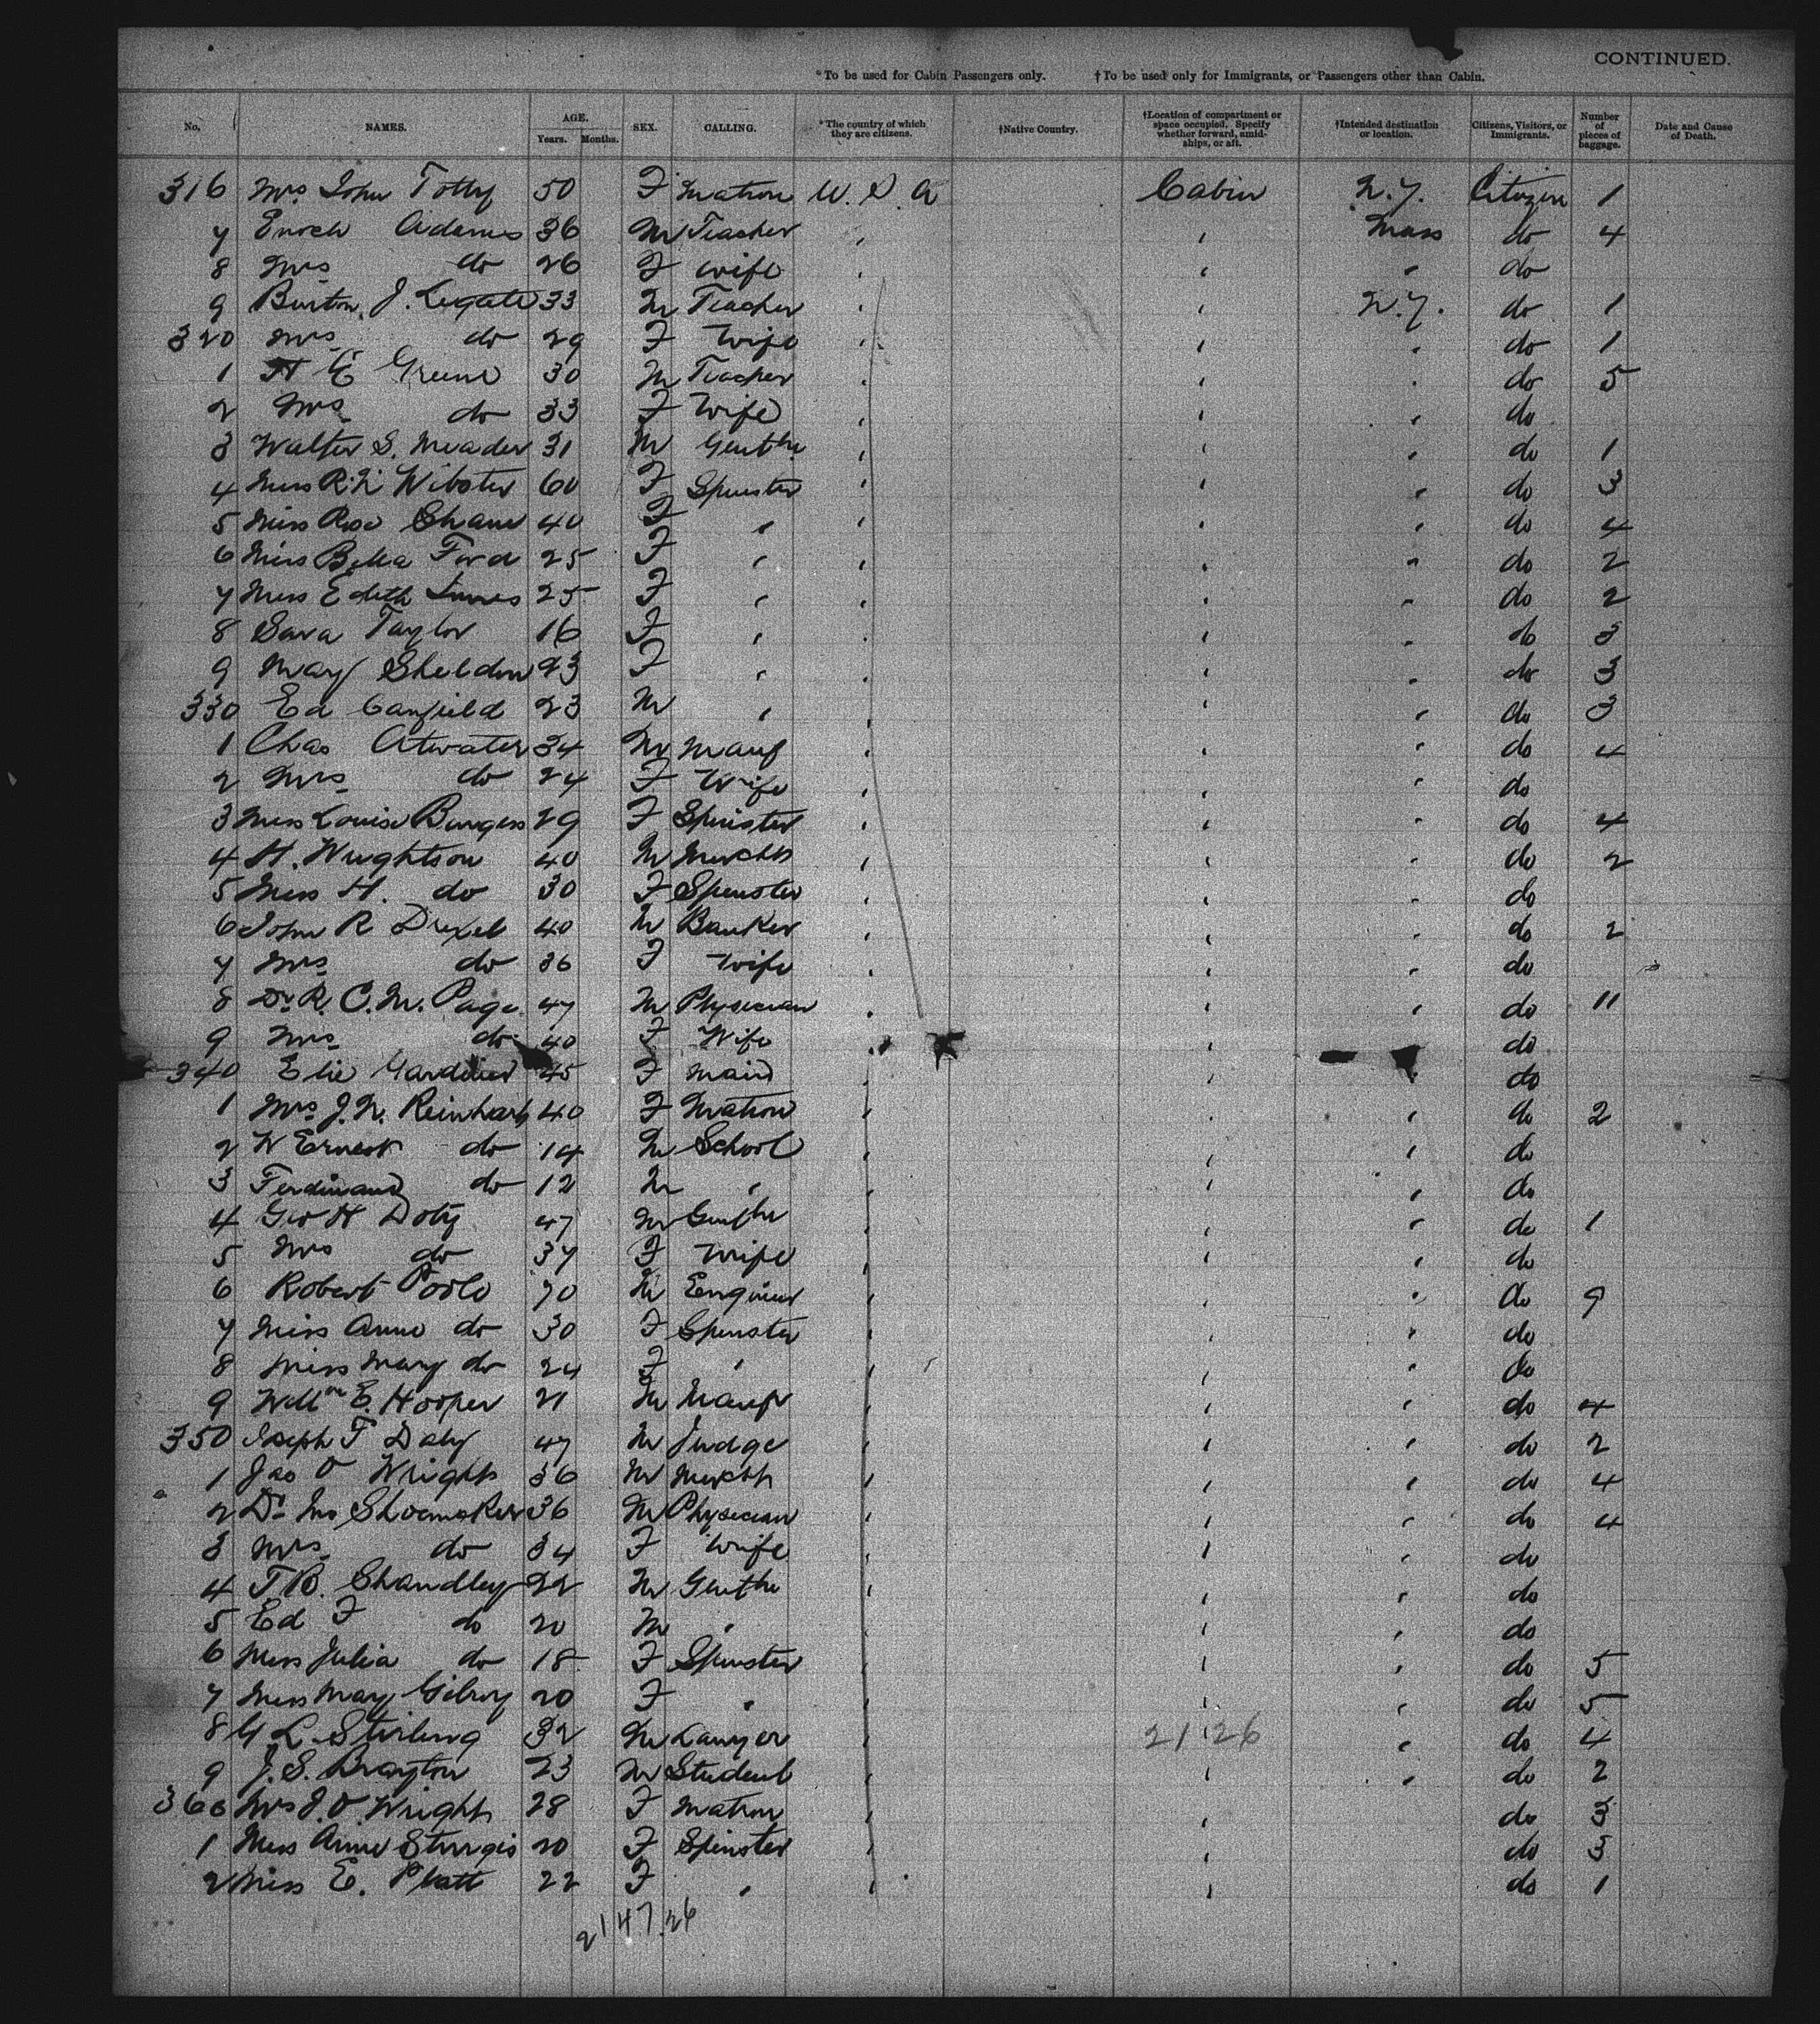 CONTINUED.
*To be used for Cabin Passengers only. †To be used only for Immigrants, or Passengers other than Cabin.
No. NAMES. AGE. Years. Months. SEX. CALLING. *The country of which they are citizens. †Native Country. †Location of compartment or space occupied. Specify whether forward, amidships, or aft. †Intended destination or location. Citizens, Visitors, or Immigrants. Number of pieces of baggage. Date and Cause of Death.
316 Mrs John Totty 50 F Matron U. S. A Cabin N.Y. Citizen 1
7 Enoch Adams 36 M Teacher " " Mass do 4
8 Mrs do 26 F Wife " " " do
9 Burton J. Legate 33 M Teacher " " N.Y. do 1
320 Mrs do 29 F Wife " " " do 1
1 H E Greene 30 M Teacher " " " do 5
2 Mrs do 33 F Wife " " " do
3 Walter S. Meader 31 M " " " do 1
4 Miss Webster 60 F Spinster " " " do 3
5 Miss Rose 40 F " " " " do 4
6 Miss Bella Ford 25 F " " " " do 2
7 Miss Edith 25 F " " " " do 2
8 Sara Taylor 16 F " " " " do 3
9 May Sheldon 23 F " " " " do 3
330 Ed Canfield 23 M " " " " do 3
1 Chas Atwater 34 M Manuf " " " do 4
2 Mrs do 24 F Wife " " " do
3 Miss Louise Burgess 29 F Spinster " " " do 4
4 H. Wrightson 40 M " " " do 2
5 Miss H. do 30 F Spinster " " " do
6 John R Drexel 40 M Banker " " " do 2
7 Mrs do 36 F Wife " " " do
8 Dr R. C. M. Page 47 M Physician " " " do 11
9 Mrs do 40 F Wife " " " do
340 Gardiner 45 F Maid " " do
1 Mrs J. N. Reinhart 40 F Matron " " " do 2
2 W Ernest do 14 M School " " " do
3 Ferdinand do 12 M " " " " do
4 Geo H Doty 47 M " " " do 1
5 Mrs do 37 F Wife " " " do
6 Robert Poole 70 M Engineer " " " do 9
7 Miss Anne do 30 F Spinster " " " do
8 Miss Mary do 24 F " " " " do
9 Willm E. Hooper 21 M Manufr " " " do 4
350 Joseph F Daly 47 M Judge " " " do 2
1 Jas O Wright 36 M " " " do 4
2 Dr Jno Shoemaker 36 M Physician " " " do 4
3 Mrs do 34 F Wife " " " do
4 T B. Shandley 22 M " " " do
5 Ed F do 20 M " " " " do
6 Miss Julia do 18 F Spinster " " " do 5
7 Miss May Gilroy 20 F " " " " do 5
8 L. Stirling 32 M Lawyer 21 26 " do 4
9 J. S. Brayton 23 M Student " " " do 2
360 Mrs J. O Wright 28 F Matron " " do 3
1 Miss Anne Sturgis 20 F Spinster " " do 3
2 Miss E. Platt 22 F " " " do 1
21 47 26